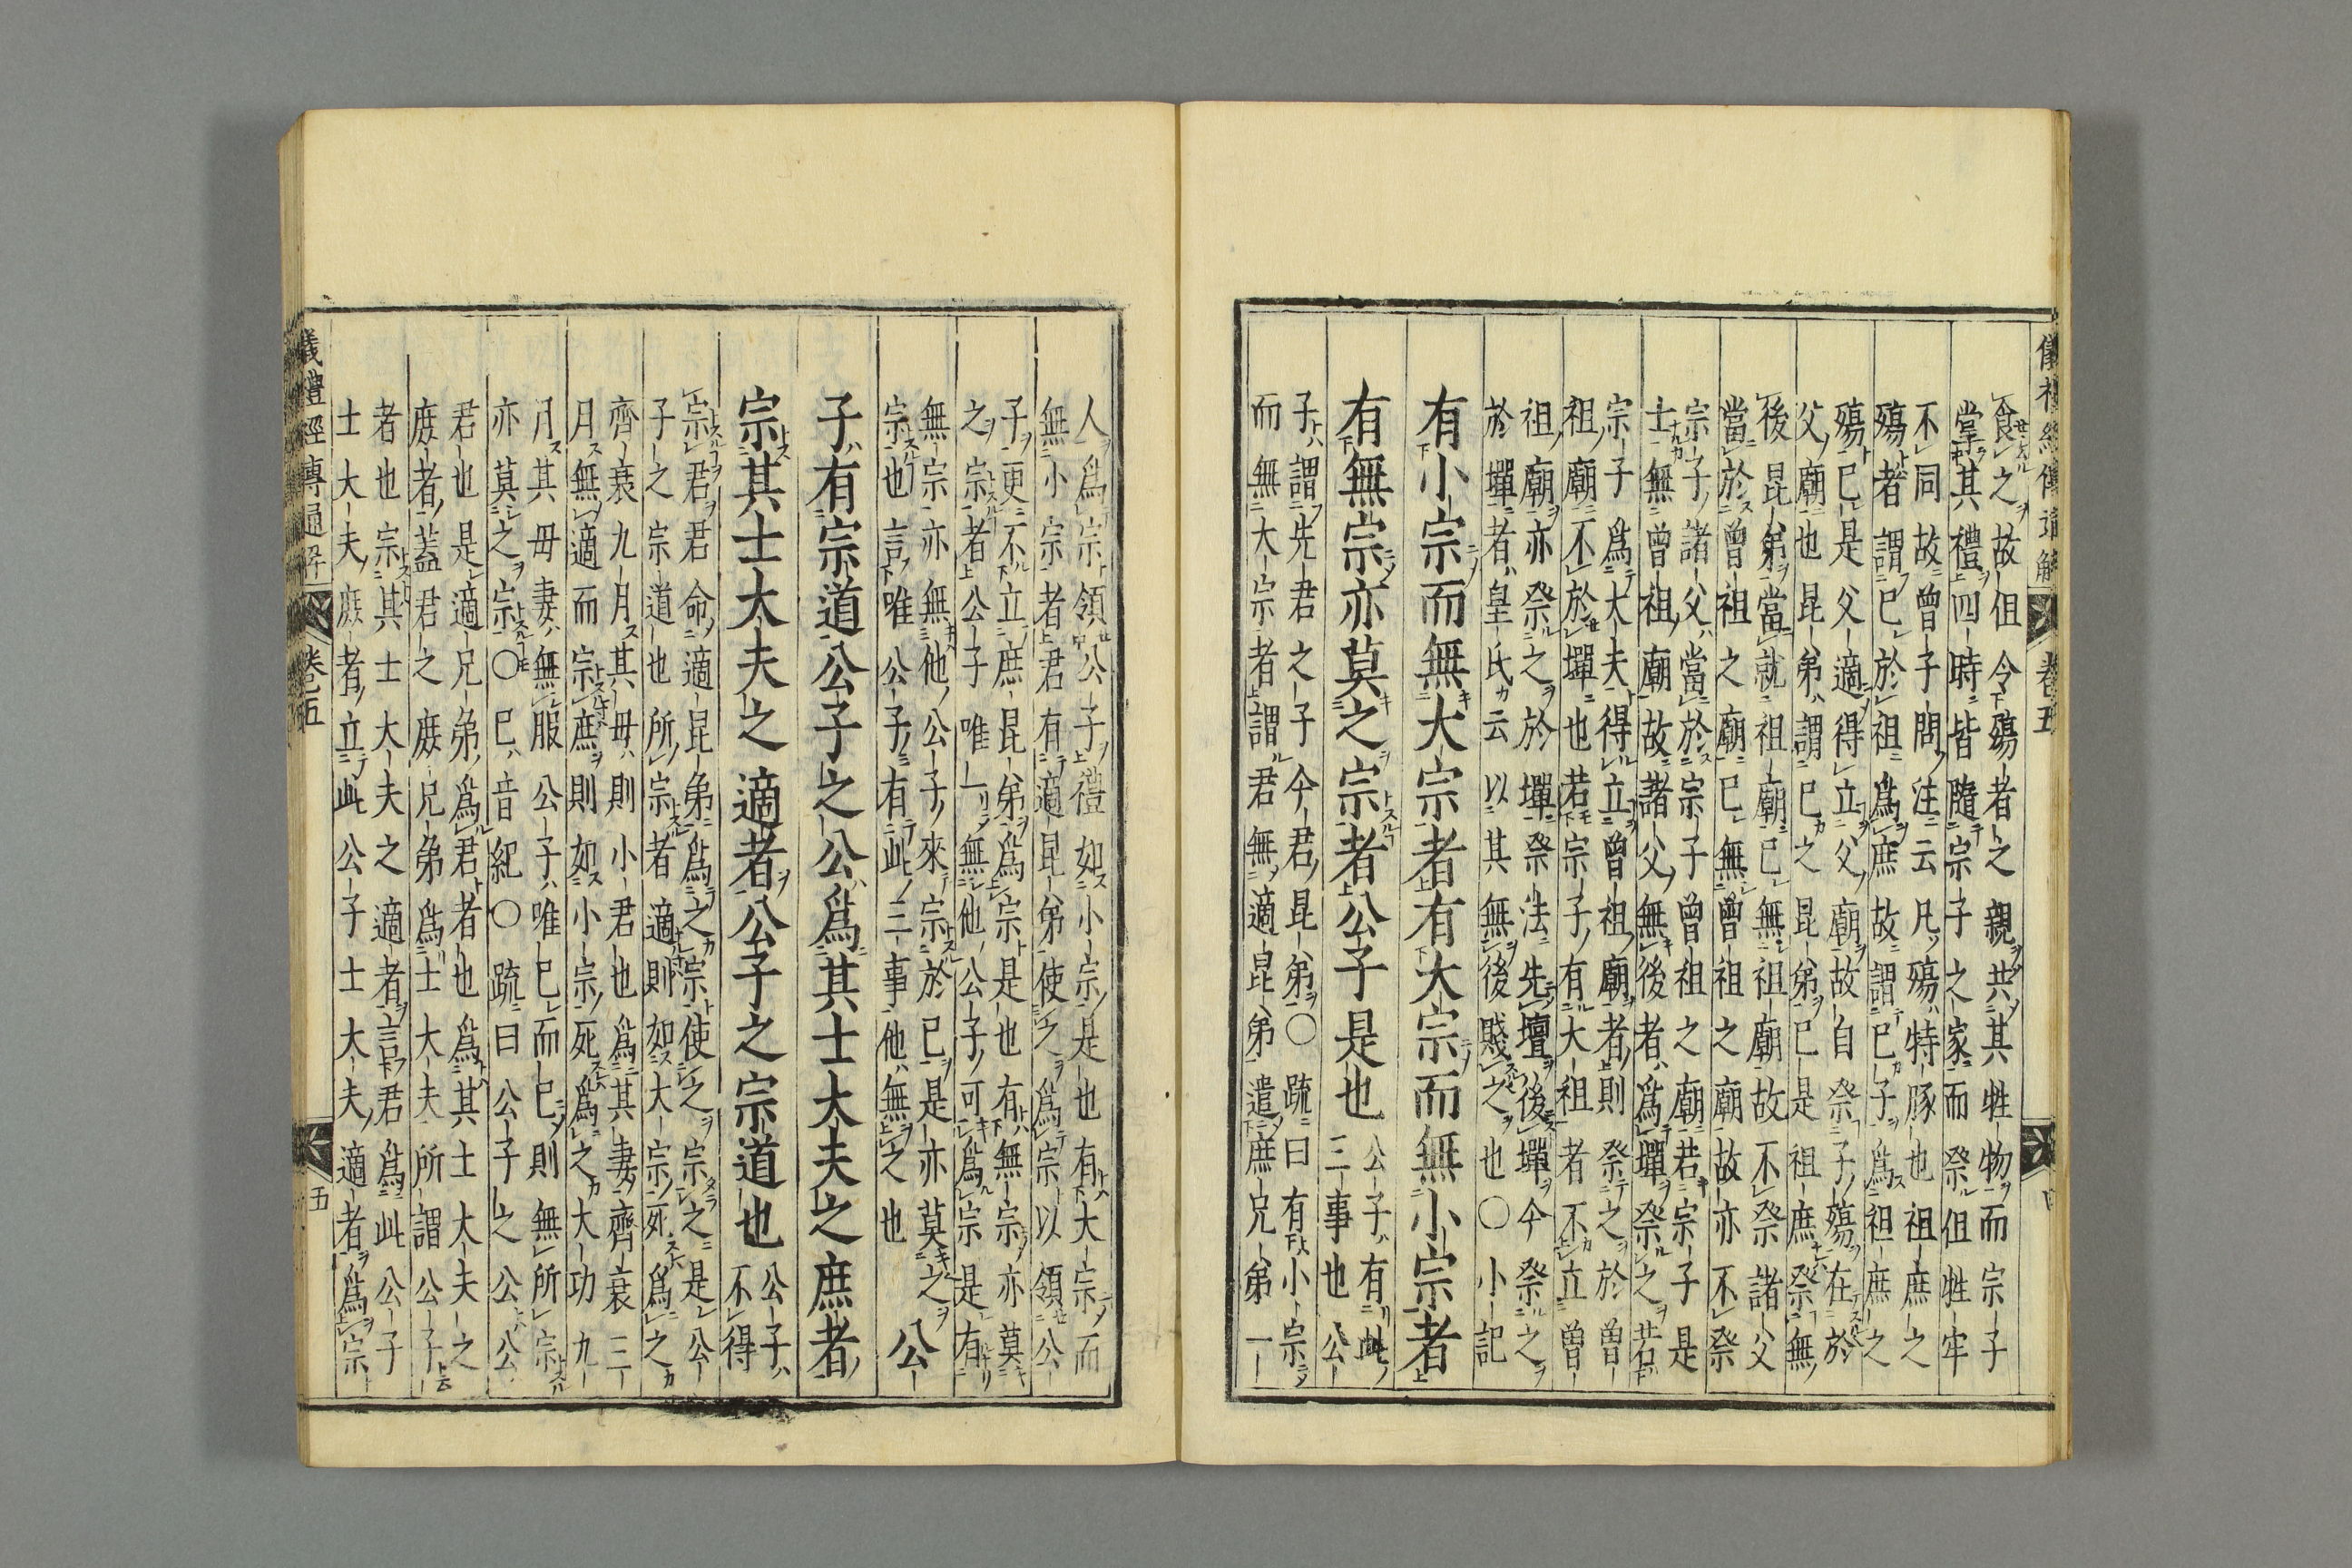 儀禮經傳通解 卷五
食之故但令殤者之親共其牲物而宗子
掌其禮四時皆隨宗子之家而祭但牲牢
不同故曾子問注云凡殤特豚也祖庶之
殤者謂已於祖爲庶故謂已子爲祖庶之
殤已是父適得立父廟故自祭子殤在於
父廟也昆弟謂已之昆弟已是祖庶祭無
後昆弟當就祖廟已無祖廟故不祭諸父
當於曾祖之廟已無曾祖之廟故亦不祭
宗子諸父當於宗子曾祖之廟君宗子是
士無曾祖廟故諸父無後者爲墠祭之若
宗子爲大夫得立曾祖廟者則祭之於曾
祖廟不於墠也若宗子有大祖者不立曾
祖廟亦祭之於墠祭法先壇後墠今祭之
於墠者皇氏云以其無後賤之也〇小記
有小宗而無大宗者有大宗而無小宗者
有無宗亦莫之宗者公子是也
公子有此
三事也公
子謂先君之子今君昆弟〇疏曰有小宗
而無大宗者謂君無適昆弟遣庶兄弟一
人爲宗領公子禮如小宗是也有大宗而
無小宗者君有適昆弟使之爲宗以領公
子更不立庶昆弟爲宗是也有無宗亦莫
之宗者公子唯一無他公子可爲宗是有
無宗亦無他公子來宗於已是亦莫之
宗也言唯公子有此三事他無之也
公
子有宗道公子之公爲其士大夫之庶者
宗其士大夫之適者公子之宗道也
公子不得
宗君君命適昆弟爲之宗使之宗之是公
子之宗道也所宗者適則如大宗死爲之
齊衰九月其母則小君也爲其妻齊衰三
月無適而宗庶則如小宗死爲之大功九
月其母妻無服公子唯已而已則無所宗
亦莫之宗〇已音紀〇疏曰公子之公公
君也是適兄弟爲君者也爲其士大夫之
庶者蓋君之庶兄弟爲士大夫所謂公子
者也宗其士大夫之適者言君爲此公子
士大夫庶者立此公子士大夫適者爲宗
儀禮經傳通解 卷五 五